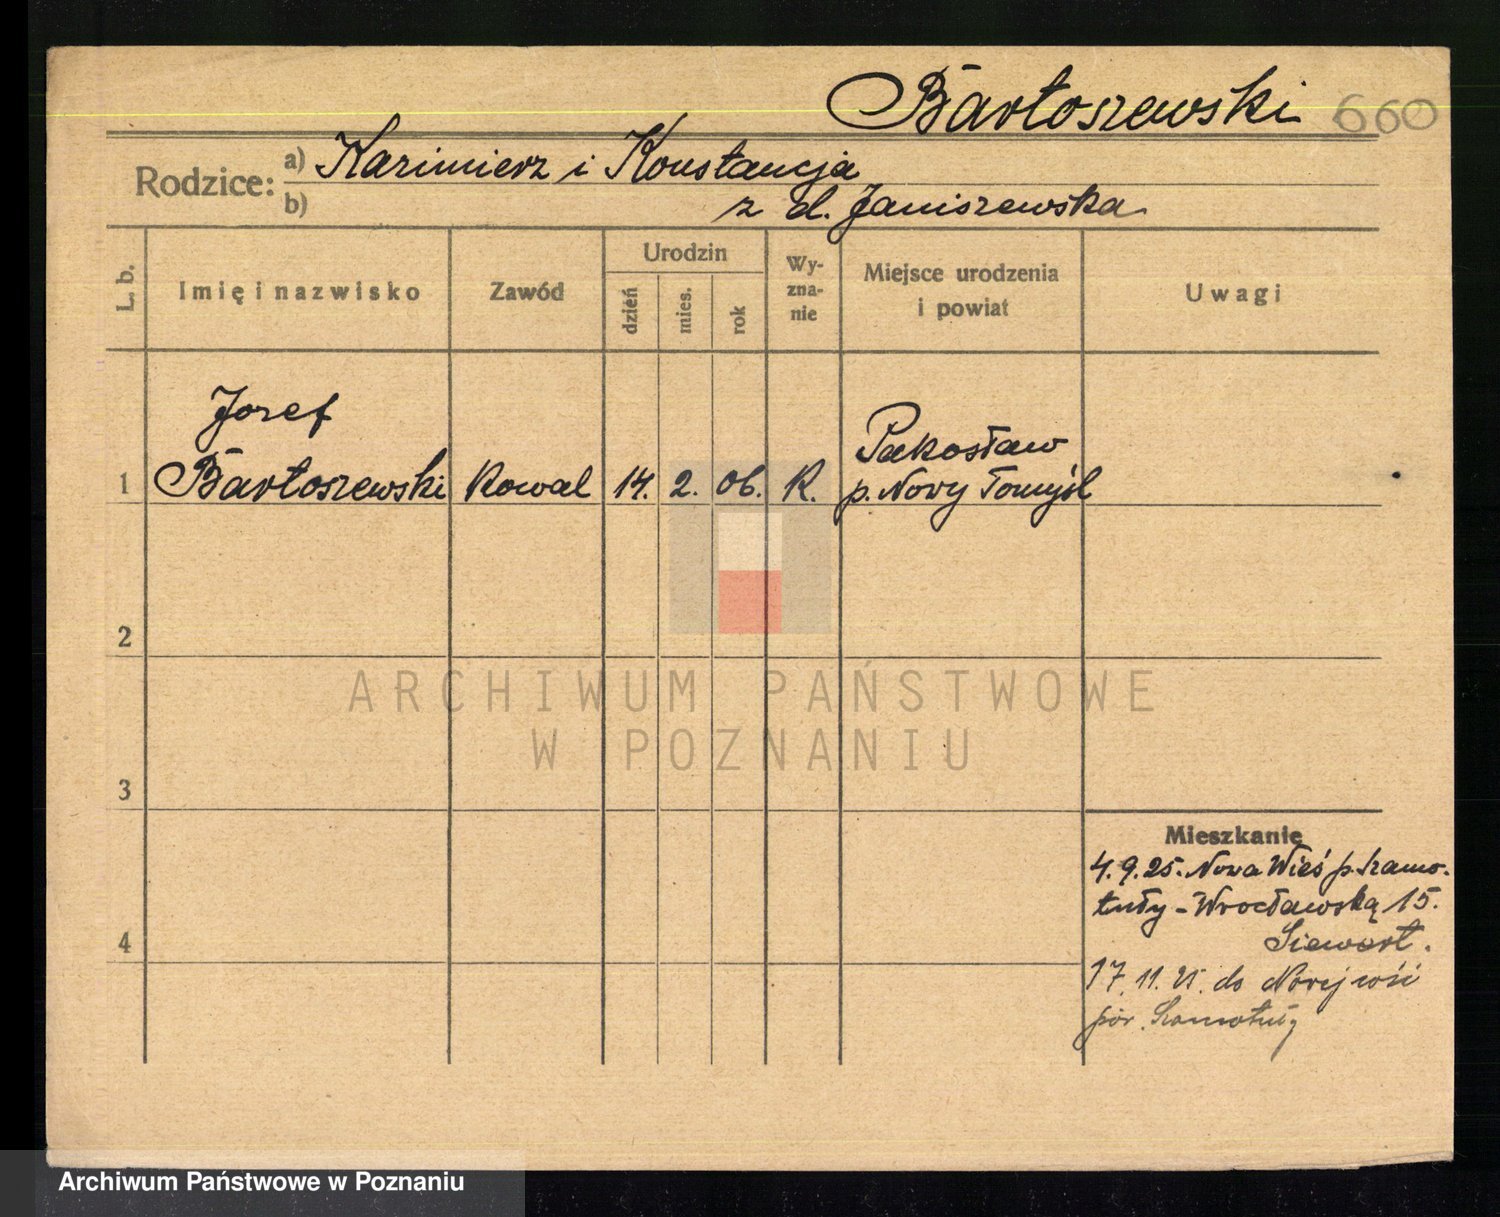 Bartoszewski 660
Rodzice: a) Kazimierz i Konstancja
b) z d. Janiszewska
L. b.
Imię i nazwisko
Zawód
Urodzin
dzień
mies.
rok
Wy-
zna-
nie
Miejsce urodzenia
i powiat
Uwagi
Jozef
Pakosław
1 Bartoszewski Kowal 14. 2. 06. K. p. Nowy Tomyśl
2
3
4
ARCHIWUM PAŃSTWOWE
W POZNANIU
Mieszkanie
4.9.25. Nowa Wieś p. Szamo-
tuły - Wrocławską 15.
Siewert.
17.11.25. do Nowej wsi
pow. Szamotuły
Archiwum Państwowe w Poznaniu